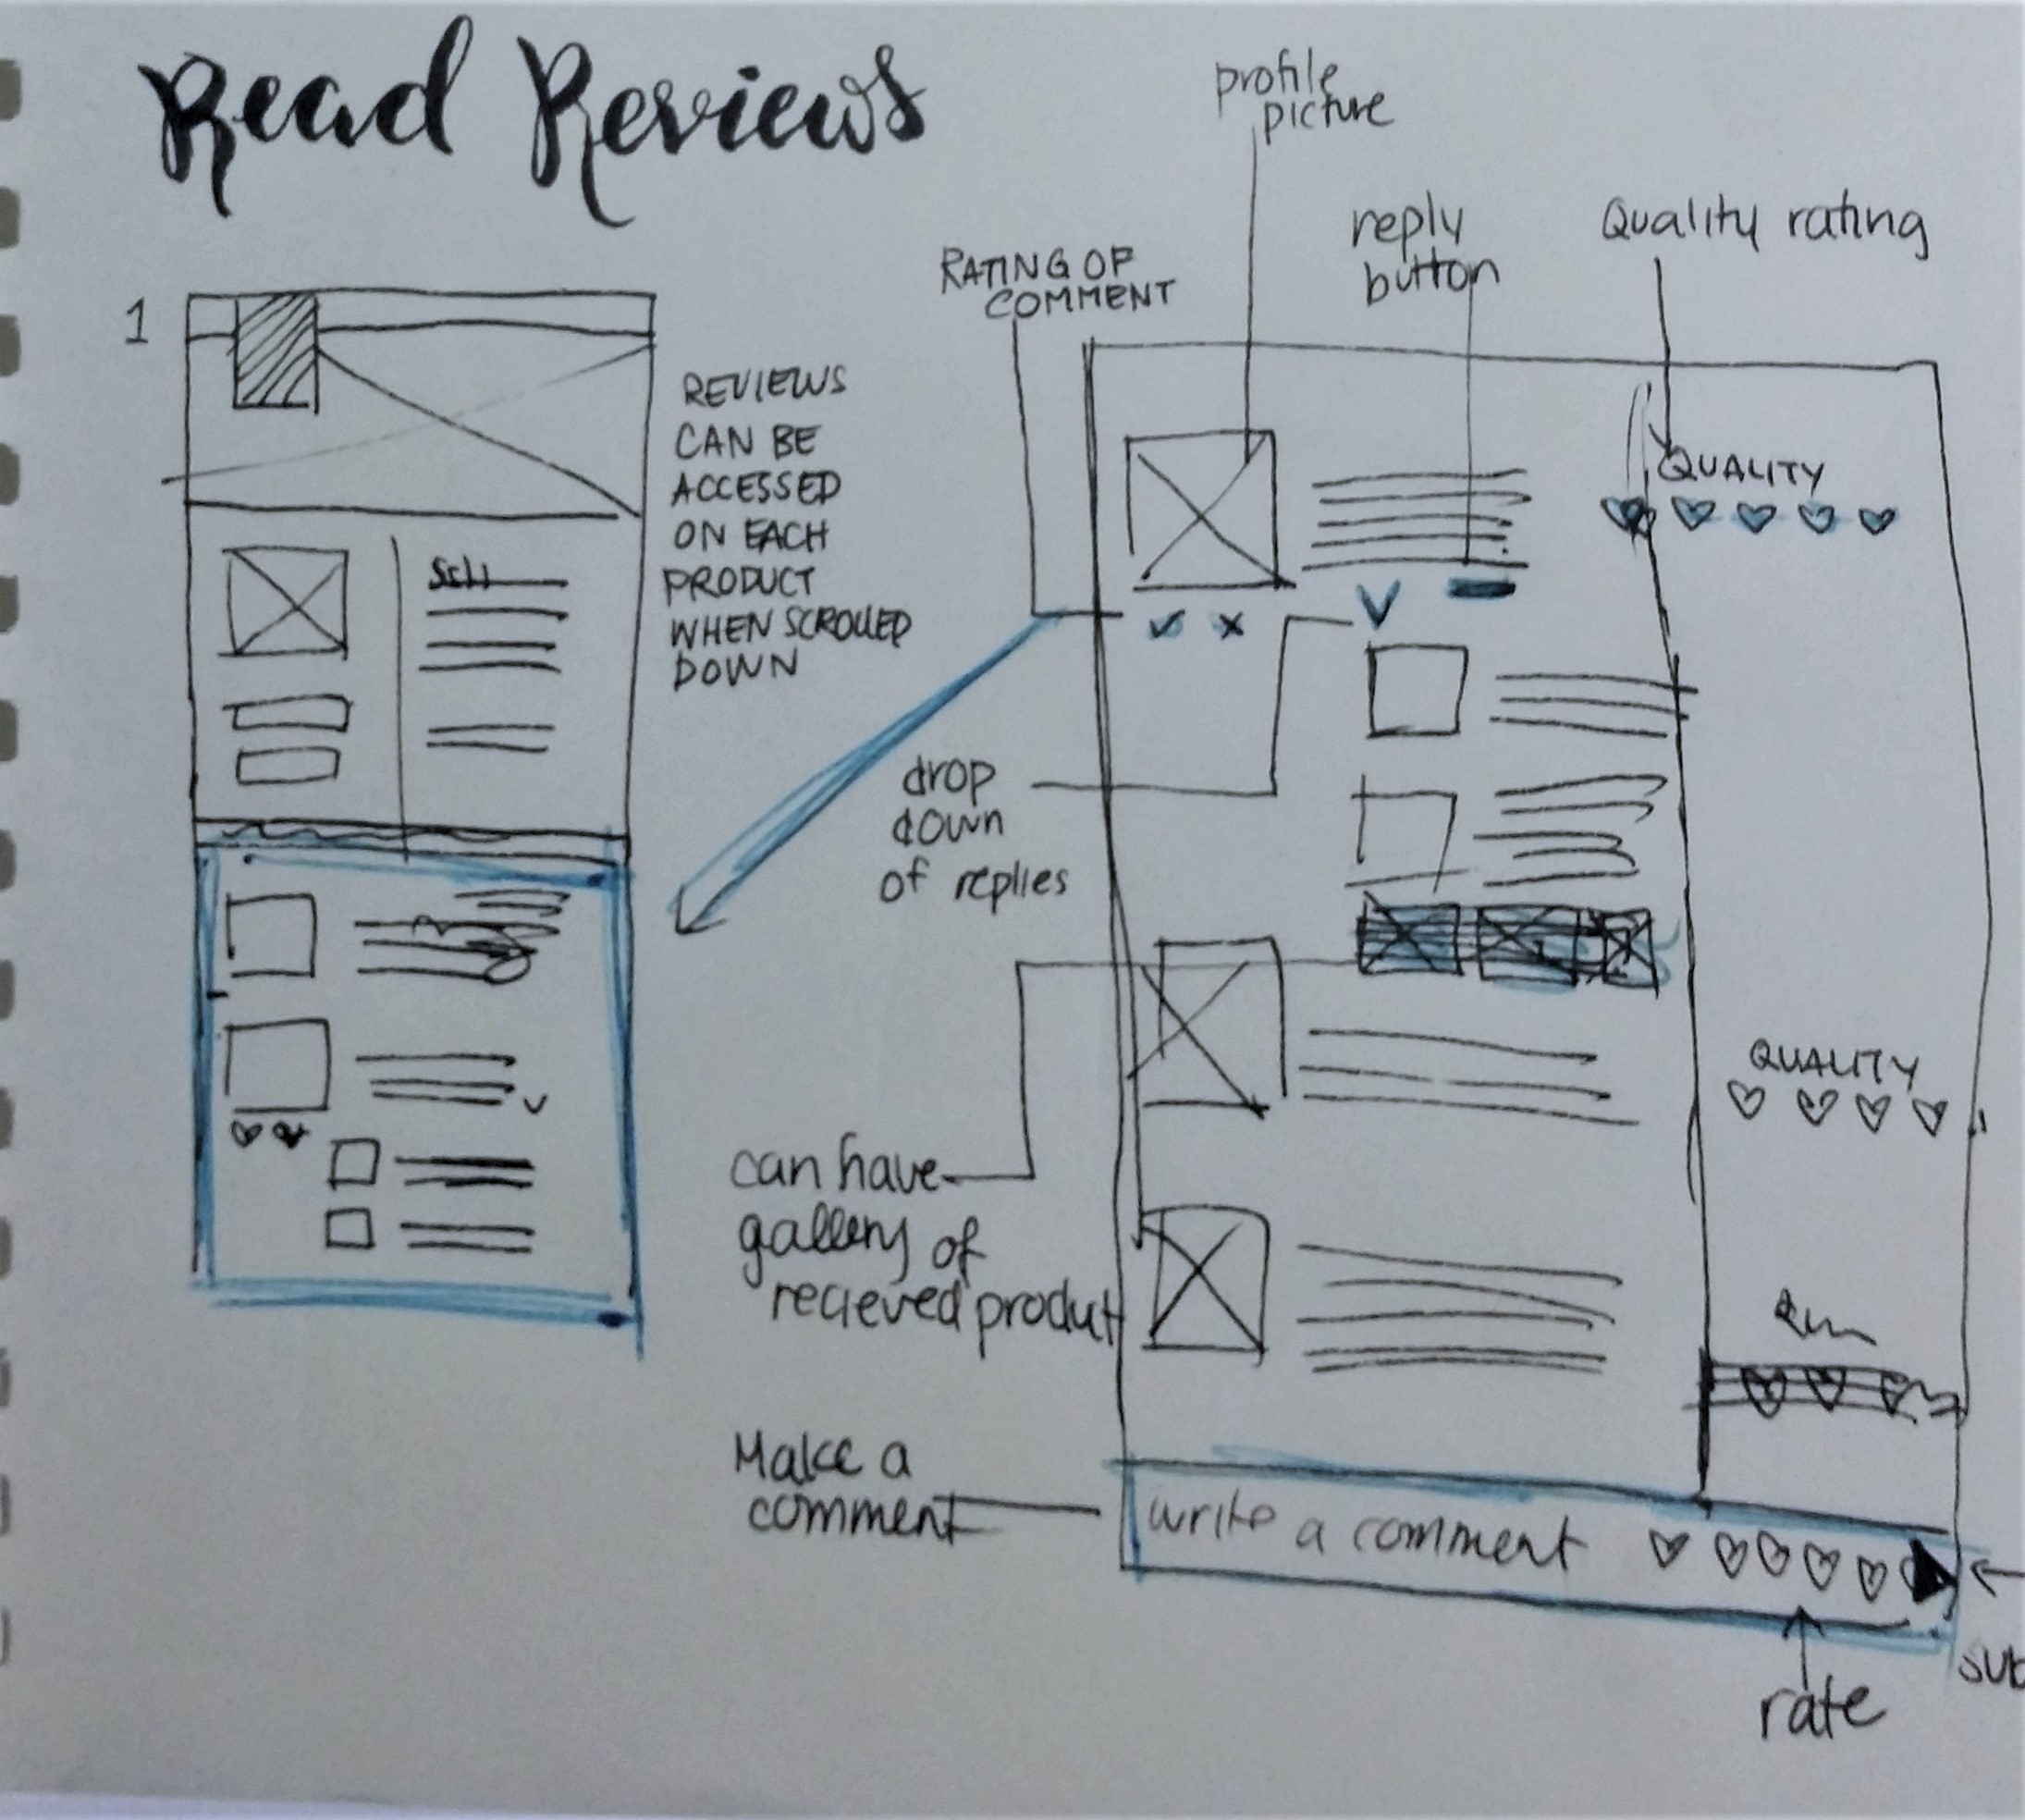 Read Reviews
1
REVIEWS
CAN BE
ACCESSED
ON EACH
PRODUCT
WHEN SCROLLED
DOWN
profile
picture
RATING OF
COMMENT
reply
button
Quality rating
QUALITY
drop
down
of replies
QUALITY
can have
gallery of
recieved produt
Make a
comment
write a comment
rate
sub